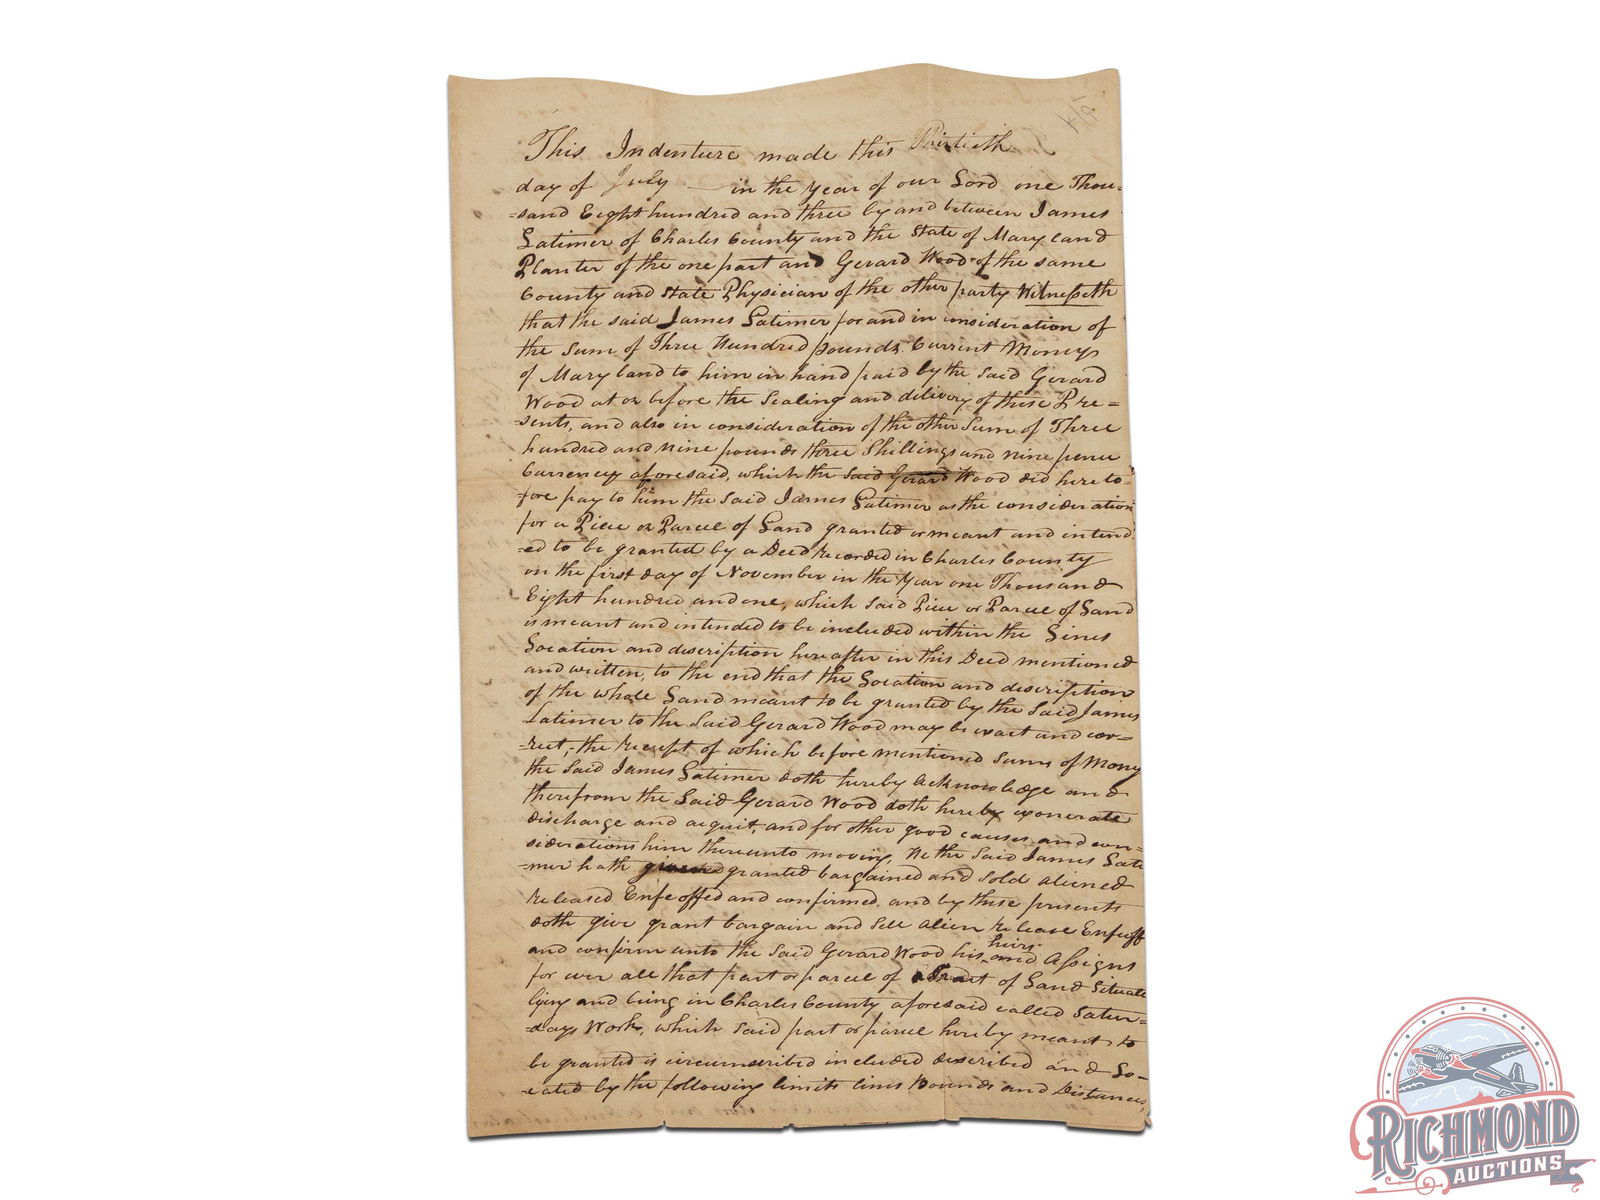 This Indenture made this Thirtieth
day of July — in the year of our Lord one Thou=
=sand Eight hundred and three by and between James
Latimer of Charles County and the State of Maryland
Planter of the one part and Gerard Wood of the same
County and State Physician of the other party Witnesseth
that the said James Latimer for and in consideration of
the Sum of Three Hundred pounds Current Money
of Maryland to him in hand paid by the said Gerard
Wood at or before the Sealing and delivery of these Pre=
=sents, and also in consideration of the other Sum of Three
hundred and nine pounds three Shillings and nine pence
Currency aforesaid, which the said Gerard Wood did hereto=
=fore pay to him the said James Latimer as the consideration
for a Piece or Parcel of Land granted or meant and intend
=ed to be granted by a Deed recorded in Charles County
on the first day of November in the year one Thousand
Eight hundred and one, which said Piece or Parcel of Land
is meant and intended to be included within the Lines
Location and discription hereafter in this Deed mentioned
and written, to the end that the Location and discription
of the whole Land meant to be granted by the said James
Latimer to the said Gerard Wood may be exact and cor=
=rect, the receipt of which before mentioned sums of Money
the said James Latimer doth hereby acknowledge and
therefrom the said Gerard Wood doth hereby exonerate
discharge and acquit, and for other good causes and con=
siderations him thereunto moving, He the said James Lati
=mer hath granted bargained and sold aliened
released Enfeoffed and confirmed, and by these presents
doth give grant bargain and sell alien release Enfeoff
and confirm unto the said Gerard Wood his heirs and Assigns
for ever all that part or parcel of a Tract of Land Situate
lying and being in Charles County aforesaid called Satur=
=days Work, which said part or parcel hereby meant to
be granted is circumscribed included described and Lo=
=cated by the following limits lines Bounds and Distances,
RICHMOND
AUCTIONS